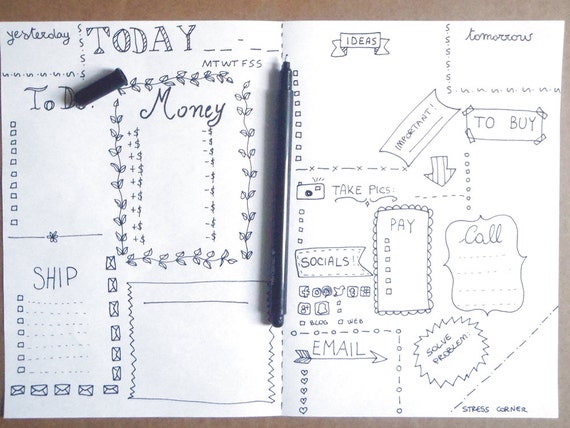 yesterday
TODAY
MTWTFSS
To Do:
Money
+$ -$
+$ -$
+$ -$
+$ -$
+$ -$
+$ -$
+$ -$
+$ -$
+$ -$
+$
SHIP
IDEAS
tomorrow
IMPORTANT!
TO BUY
TAKE PICS:
PAY
Call
SOCIALS!
BLOG WEB
EMAIL
SOLVE
PROBLEM
STRESS CORNER